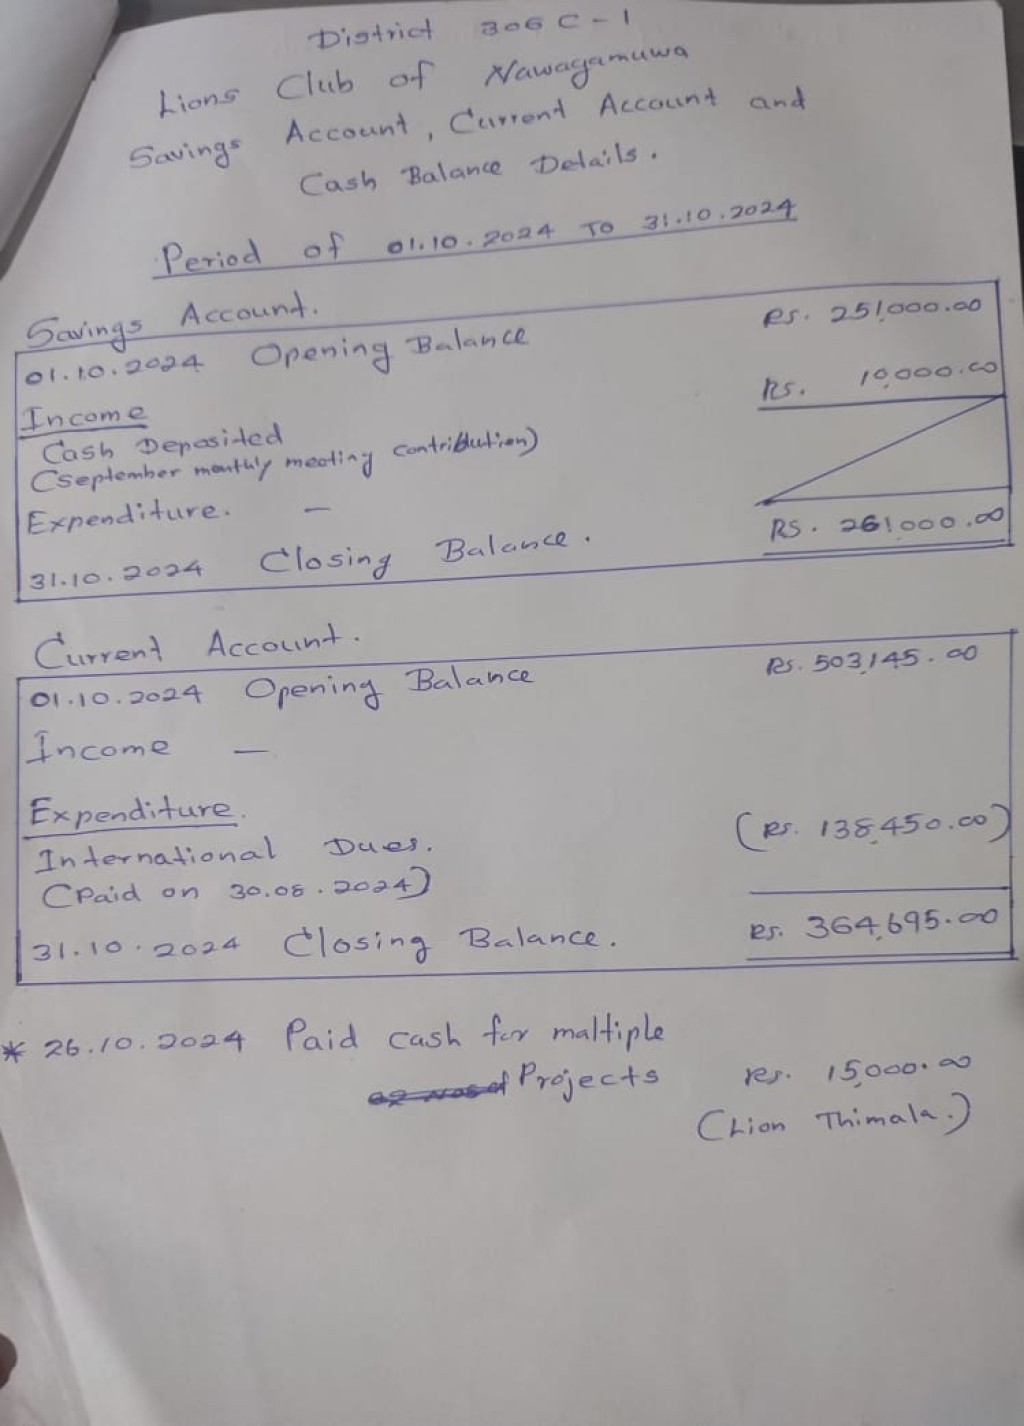 District 306 C-1
Lions Club of Nawagamuwa
Savings Account, Current Account and
Cash Balance Details.
Period of 01.10.2024 To 31.10.2024
Savings Account.
01.10.2024 Opening Balance Rs. 251,000.00
Income Rs. 10,000.00
Cash Deposited
(September monthly meeting contribution)
Expenditure. —
31.10.2024 Closing Balance. RS. 261,000.00
Current Account.
01.10.2024 Opening Balance Rs. 503,145.00
Income —
Expenditure.
International Dues. (Rs. 138,450.00)
(Paid on 30.08.2024)
31.10.2024 Closing Balance. Rs. 364,695.00
* 26.10.2024 Paid cash for maltiple
Projects Rs. 15,000.00
(Lion Thimala.)